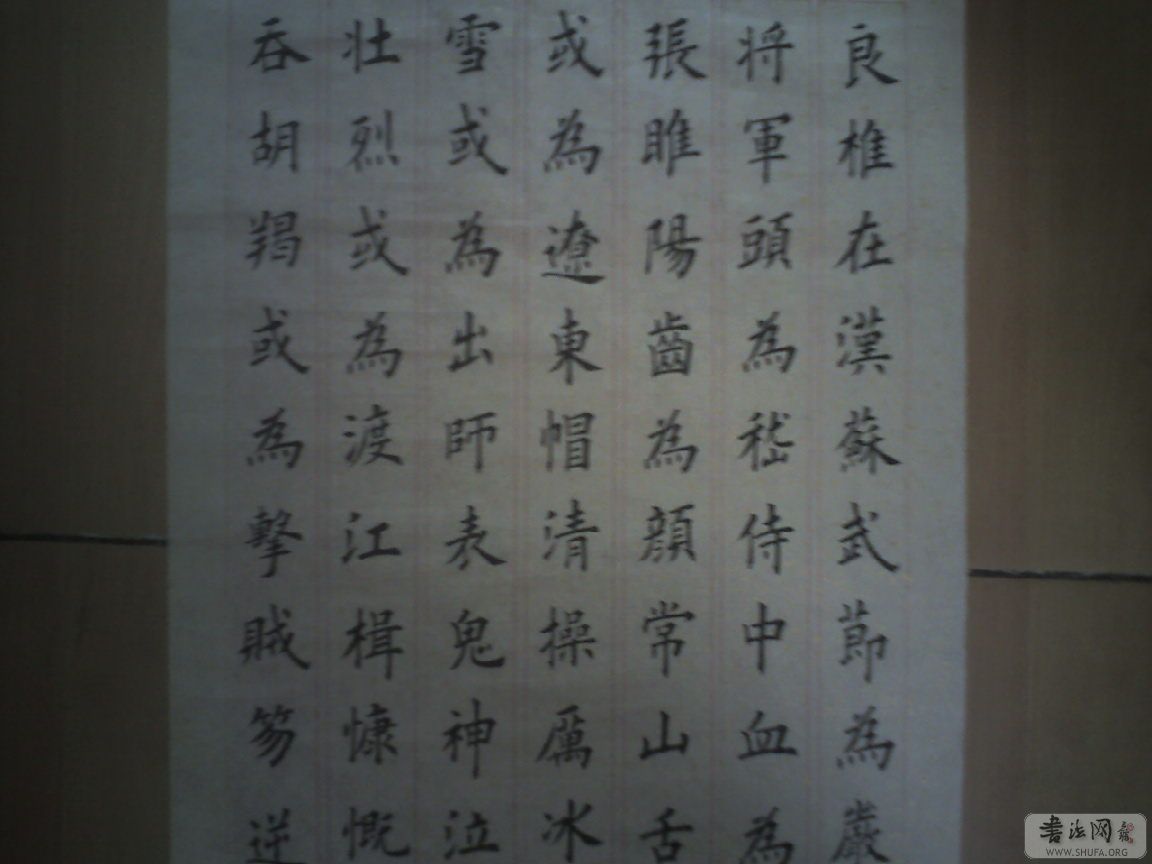 良椎在漢蘇武節為嚴
将軍頭為嵇侍中血為
張睢陽齒為顔常山舌
或為遼東帽清操厲冰
雪或為出師表鬼神泣
壮烈或為渡江楫慷慨
吞胡羯或為擊賊笏逆
書法网
WWW.SHUFA.ORG